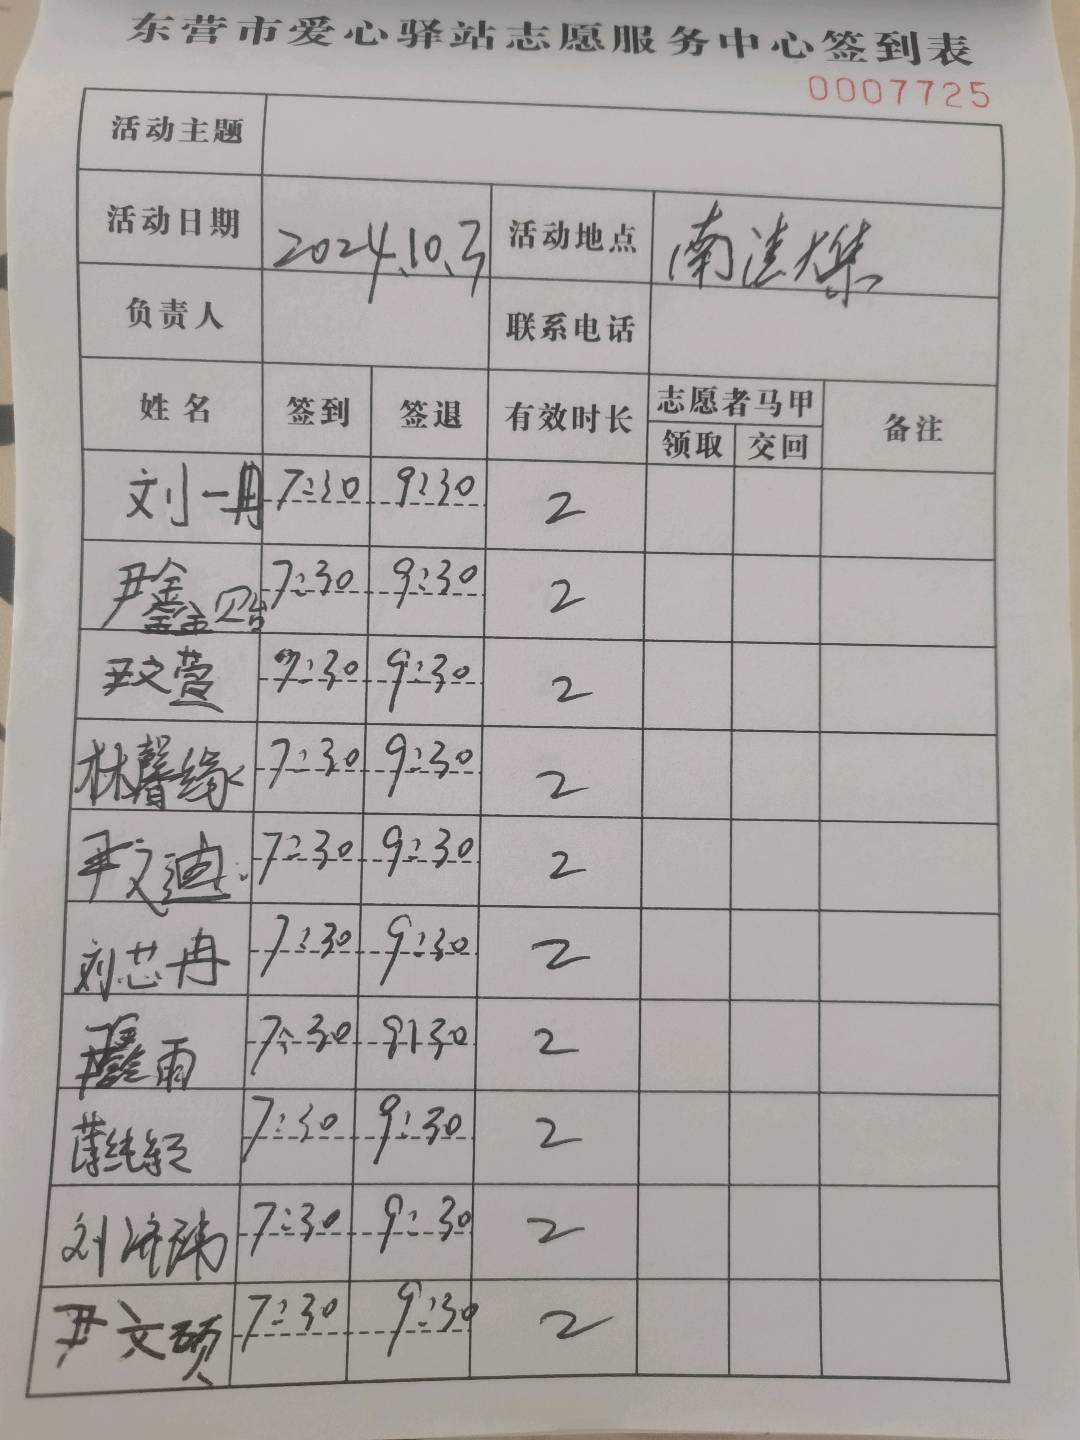 东营市爱心驿站志愿服务中心签到表
0007725
活动主题
活动日期 2024.10.3 活动地点 南洼大集
负责人 联系电话
姓名 签到 签退 有效时长 志愿者马甲 备注
领取 交回
刘一冉 7:30 9:30 2
尹鑫贻 7:30 9:30 2
尹文萱 7:30 9:30 2
林馨缘 7:30 9:30 2
尹文迪 7:30 9:30 2
刘芯冉 7:30 9:30 2
尹鑫雨 7:30 9:30 2
薛纯颖 7:30 9:30 2
刘 7:30 9:30 2
尹文硕 7:30 9:30 2